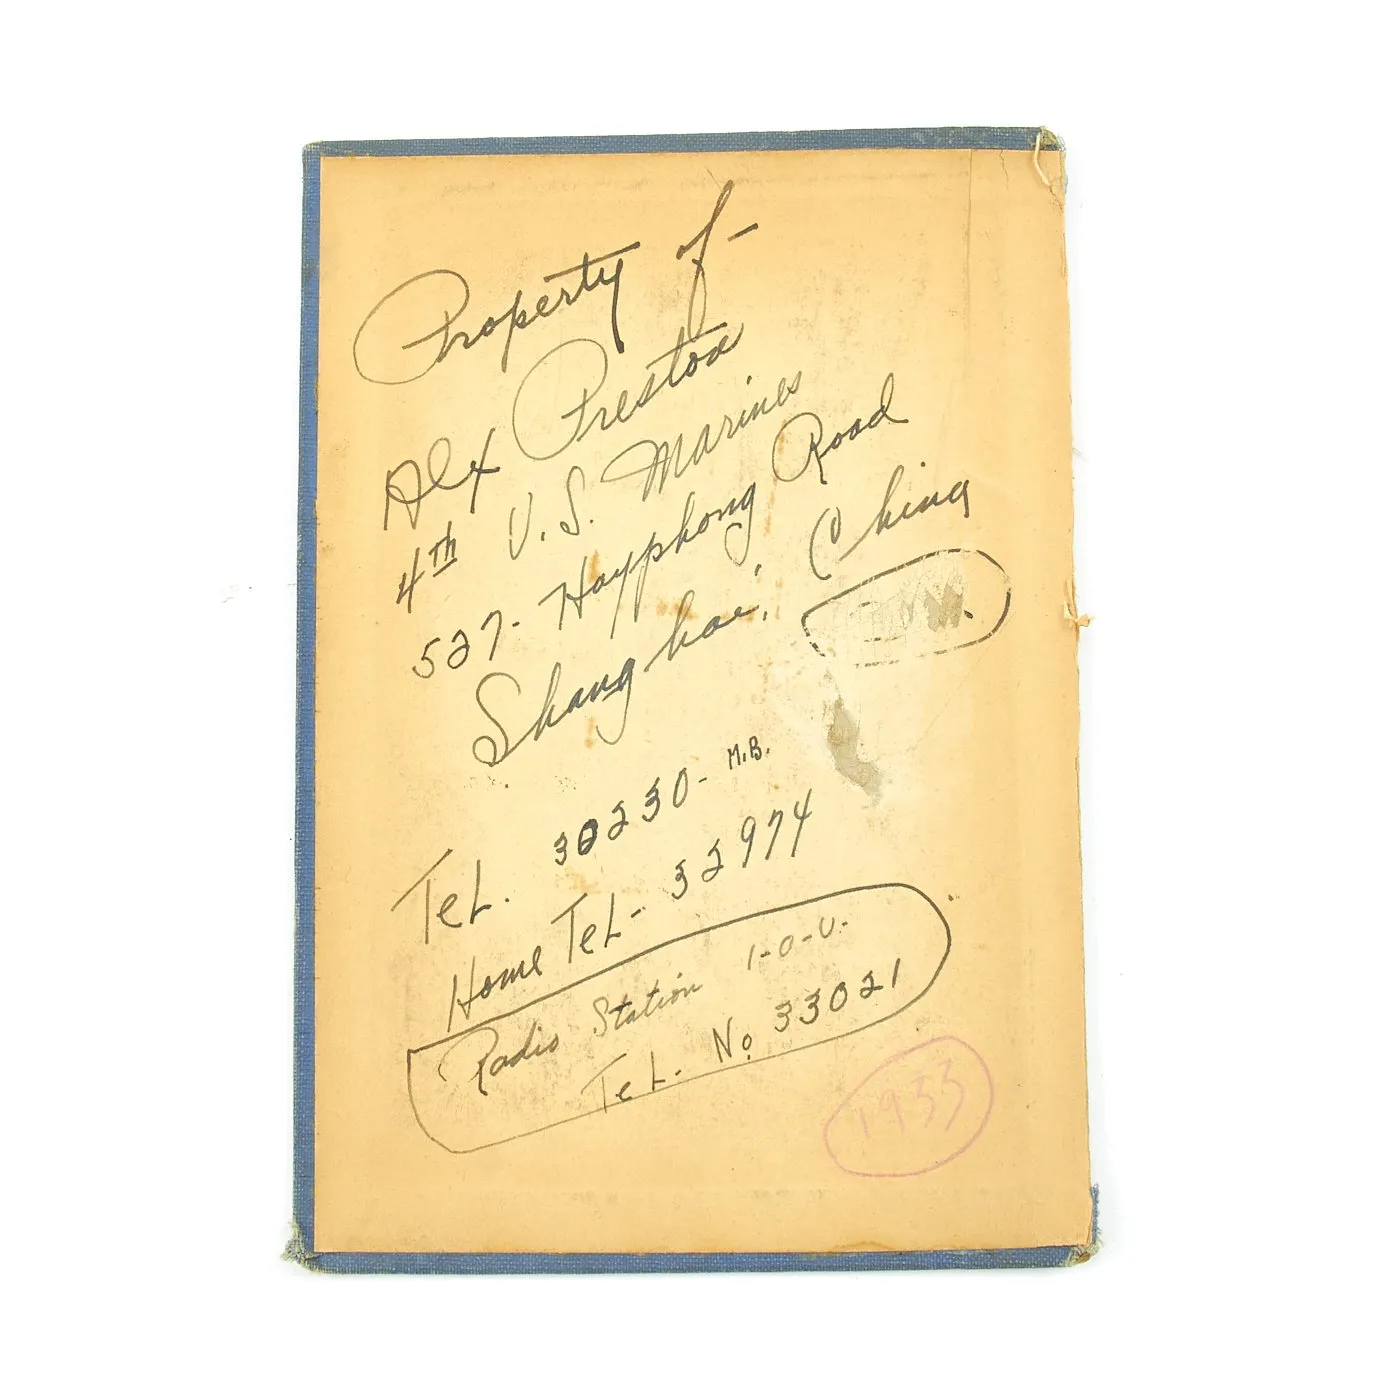 Property of -
Alex Preston
4th U.S. Marines
527- Hayphong Road
Shanghai, China
Tel. 30230- M.B.
Home Tel- 32974
Radio Station 1-0-U.
Tel. No 33021
1933